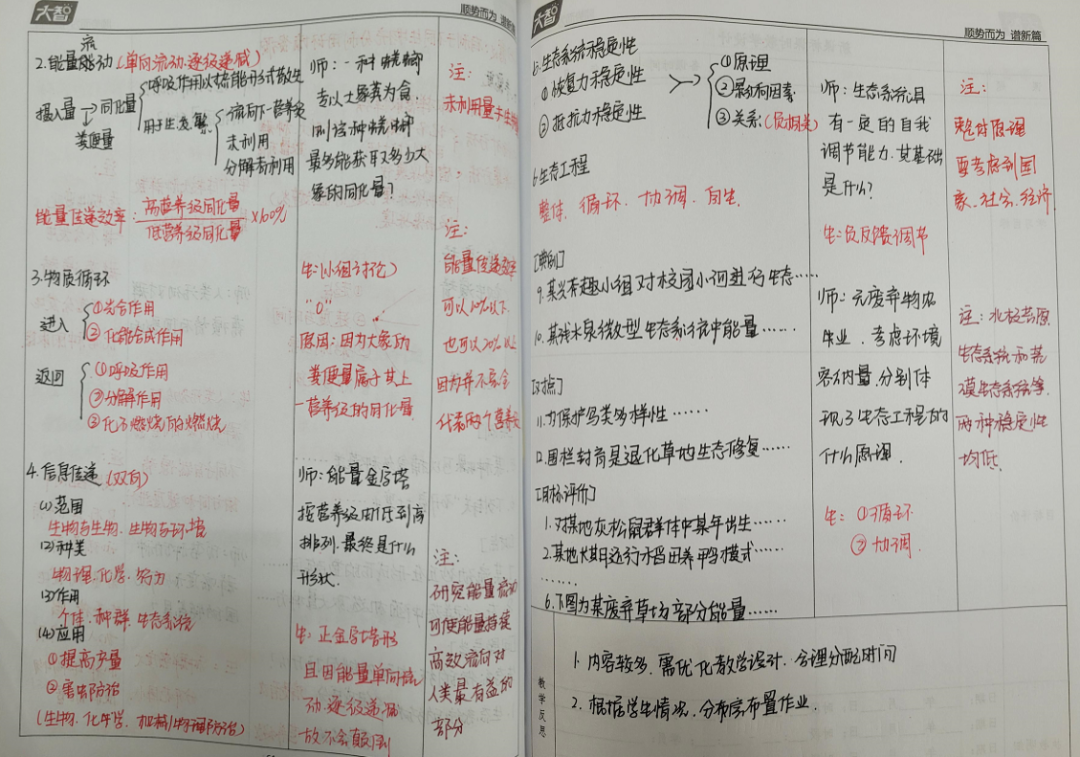 大智
顺势而为 谱新篇
2.能量流动(单向流动.逐级递减)
摄入量→同化量
粪便量
呼吸作用以热能形式散失
用于生发繁
流向下一营养级
未利用
分解者利用
能量传递效率:高营养级同化量/低营养级同化量×100%
3.物质循环
进入
①光合作用
②化能合成作用
返回
①呼吸作用
②分解作用
③化石燃料的燃烧
4.信息传递(双向)
(1)范围
生物与生物.生物与环境
(2)种类
物理.化学.行为
(3)作用
个体.种群.生态系统
(4)应用
①提高产量
②害虫防治
(生物.化学.机械防治)
师:一种蜣螂
专以大象粪为食
则这种蜣螂
最多能获取多少大
象的同化量?
生:(小组讨论)
"0"
原因:因为大象的
粪便量属于其上
一营养级的同化量
师:能量金字塔
按营养级由低到高
排列.最终是什么
形状.
生:正金字塔形
且因能量单向流
动.逐级递减
故不会颠倒
注:
未利用量
注:
能量传递效率
可以10%以下
也可以20%以上
因为并不完全
代表两个营养级
注:
研究能量流动
可使能量持续
高效流向对
人类最有益的
部分
大智
顺势而为 谱新篇
5.生态系统稳定性
①恢复力稳定性
②抵抗力稳定性
①原理
②影响因素
③关系(负相关)
6.生态工程
整体.循环.协调.自生
[典例]
9.某兴趣小组对校园小河进行生态……
10.某热水泉微型生态系统中能量……
[对点]
11.为保护鸟类多样性……
12.围栏封育是退化草地生态修复……
[目标评价]
1.对某地灰松鼠群体中某年出生……
2.某地大力推行稻田养鸭模式……
……
6.下图为某废弃草场部分能量……
师:生态系统具
有一定的自我
调节能力.其基础
是什么?
生:负反馈调节
师:无废弃物农
业.考虑环境
容纳量.分别体
现了生态工程的
什么原理.
生:①循环
②协调.
注:
整体原理
要考虑到国
家.社会.经济
注:北极苔原
生态系统和荒
漠生态系统等
两种稳定性
均低.
教学反思
1.内容较多.需优化教学设计.合理分配时间
2.根据学生情况.分层次布置作业.